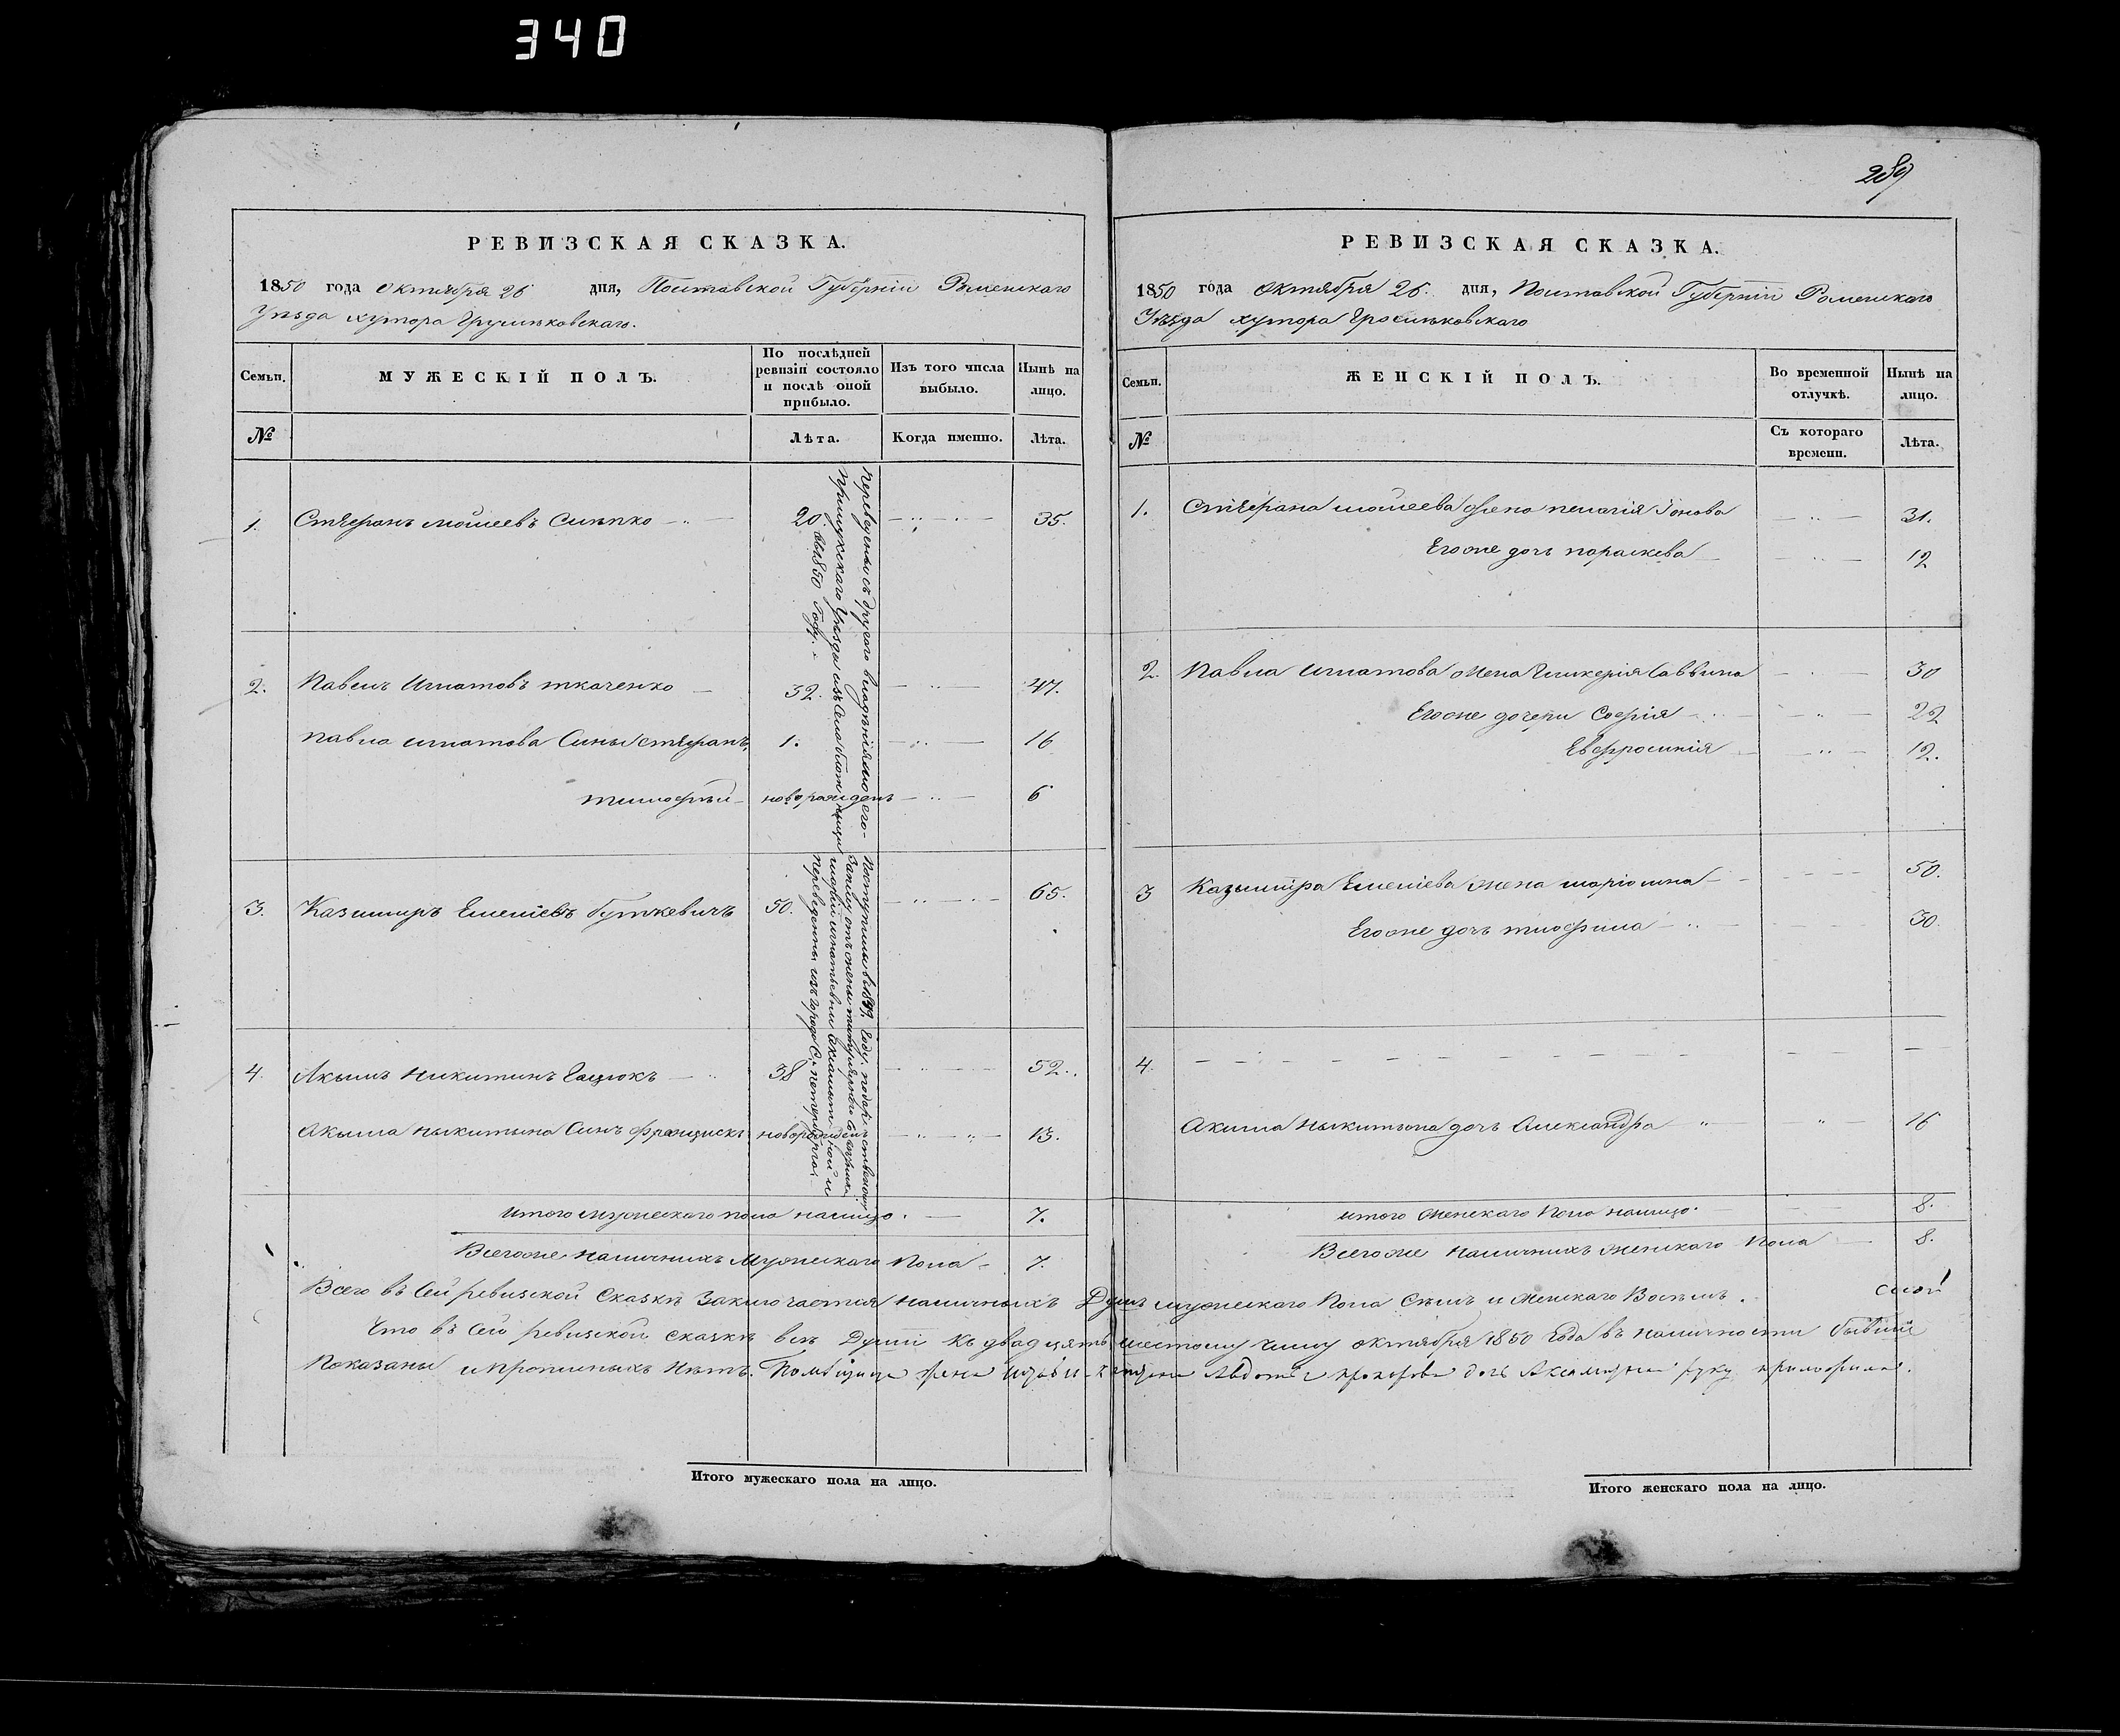 340
289
РЕВИЗСКАЯ СКАЗКА.
1850 года Октября 26 дня, Полтавской Губерніи Роменскаго
Уѣзда хутора
Семьи.
МУЖЕСКІЙ ПОЛЪ.
По послѣдней ревизіи состояло и послѣ оной прибыло.
Изъ того числа выбыло.
Нынѣ на лицо.
№
Лѣта.
Когда именно.
Лѣта.
1. Стефанъ Мойсеевъ 20. 35.
2. Павелъ Игнатовъ Ткаченко 32. 47.
Павла Игнатова Сыны Стефанъ, 1. 16
Тимофѣй новорожденъ 6
3. Казимиръ Буткевичъ 50. 65.
4. Акымъ Никитинъ 38 52.
Акыма Никитина Сынъ Францискъ новорожденъ 13.
Переведены съ другого владѣнія моего
Прилуцкаго Уѣзда изъ Села
въ 1850 Году.
Поступили въ 1849 Году, по
Запису отъ жены титулярнаго
и
переведенны изъ города С. петербурга
Итого мужескаго пола налицо. 7.
Всегоже наличныхъ Мужескаго Пола 7.
РЕВИЗСКАЯ СКАЗКА.
1850 года Октября 26. дня, Полтавской Губерніи Роменскаго
Уѣзда хутора
Семьи.
ЖЕНСКІЙ ПОЛЪ.
Во временной отлучкѣ.
Нынѣ на лицо.
№
Съ котораго времени.
Лѣта.
1. Стефана Мойсеева жена Пелагія Іонова 31.
Егоже дочь Параскева 12
2. Павла Игнатова жена Гликерія Саввина 30
Егоже дочери Софія 22
Евфросинія 12.
3 Казимира жена Маріанна 50.
Егоже дочь Теофила 30.
4.
Акима Никитина дочь Александра 16
Итого Женскаго Пола налицо. 8.
Всегоже Наличныхъ женскаго Пола 8.
Всего въ Сей ревизской Сказкѣ Заключается наличныхъ Душъ мужескаго Пола Сѣмъ и Женскаго Восѣмъ.
Что въ Сей ревизской сказкѣ всѣ Души къ двадцять шестому числу октября 1850 Года въ наличности бывшіе
Показаны и прописныхъ Нѣтъ. Помѣщица жена Авдотья Прохорова дочь руку приложила.
Итого мужескаго пола на лицо.
Итого женскаго пола на лицо.